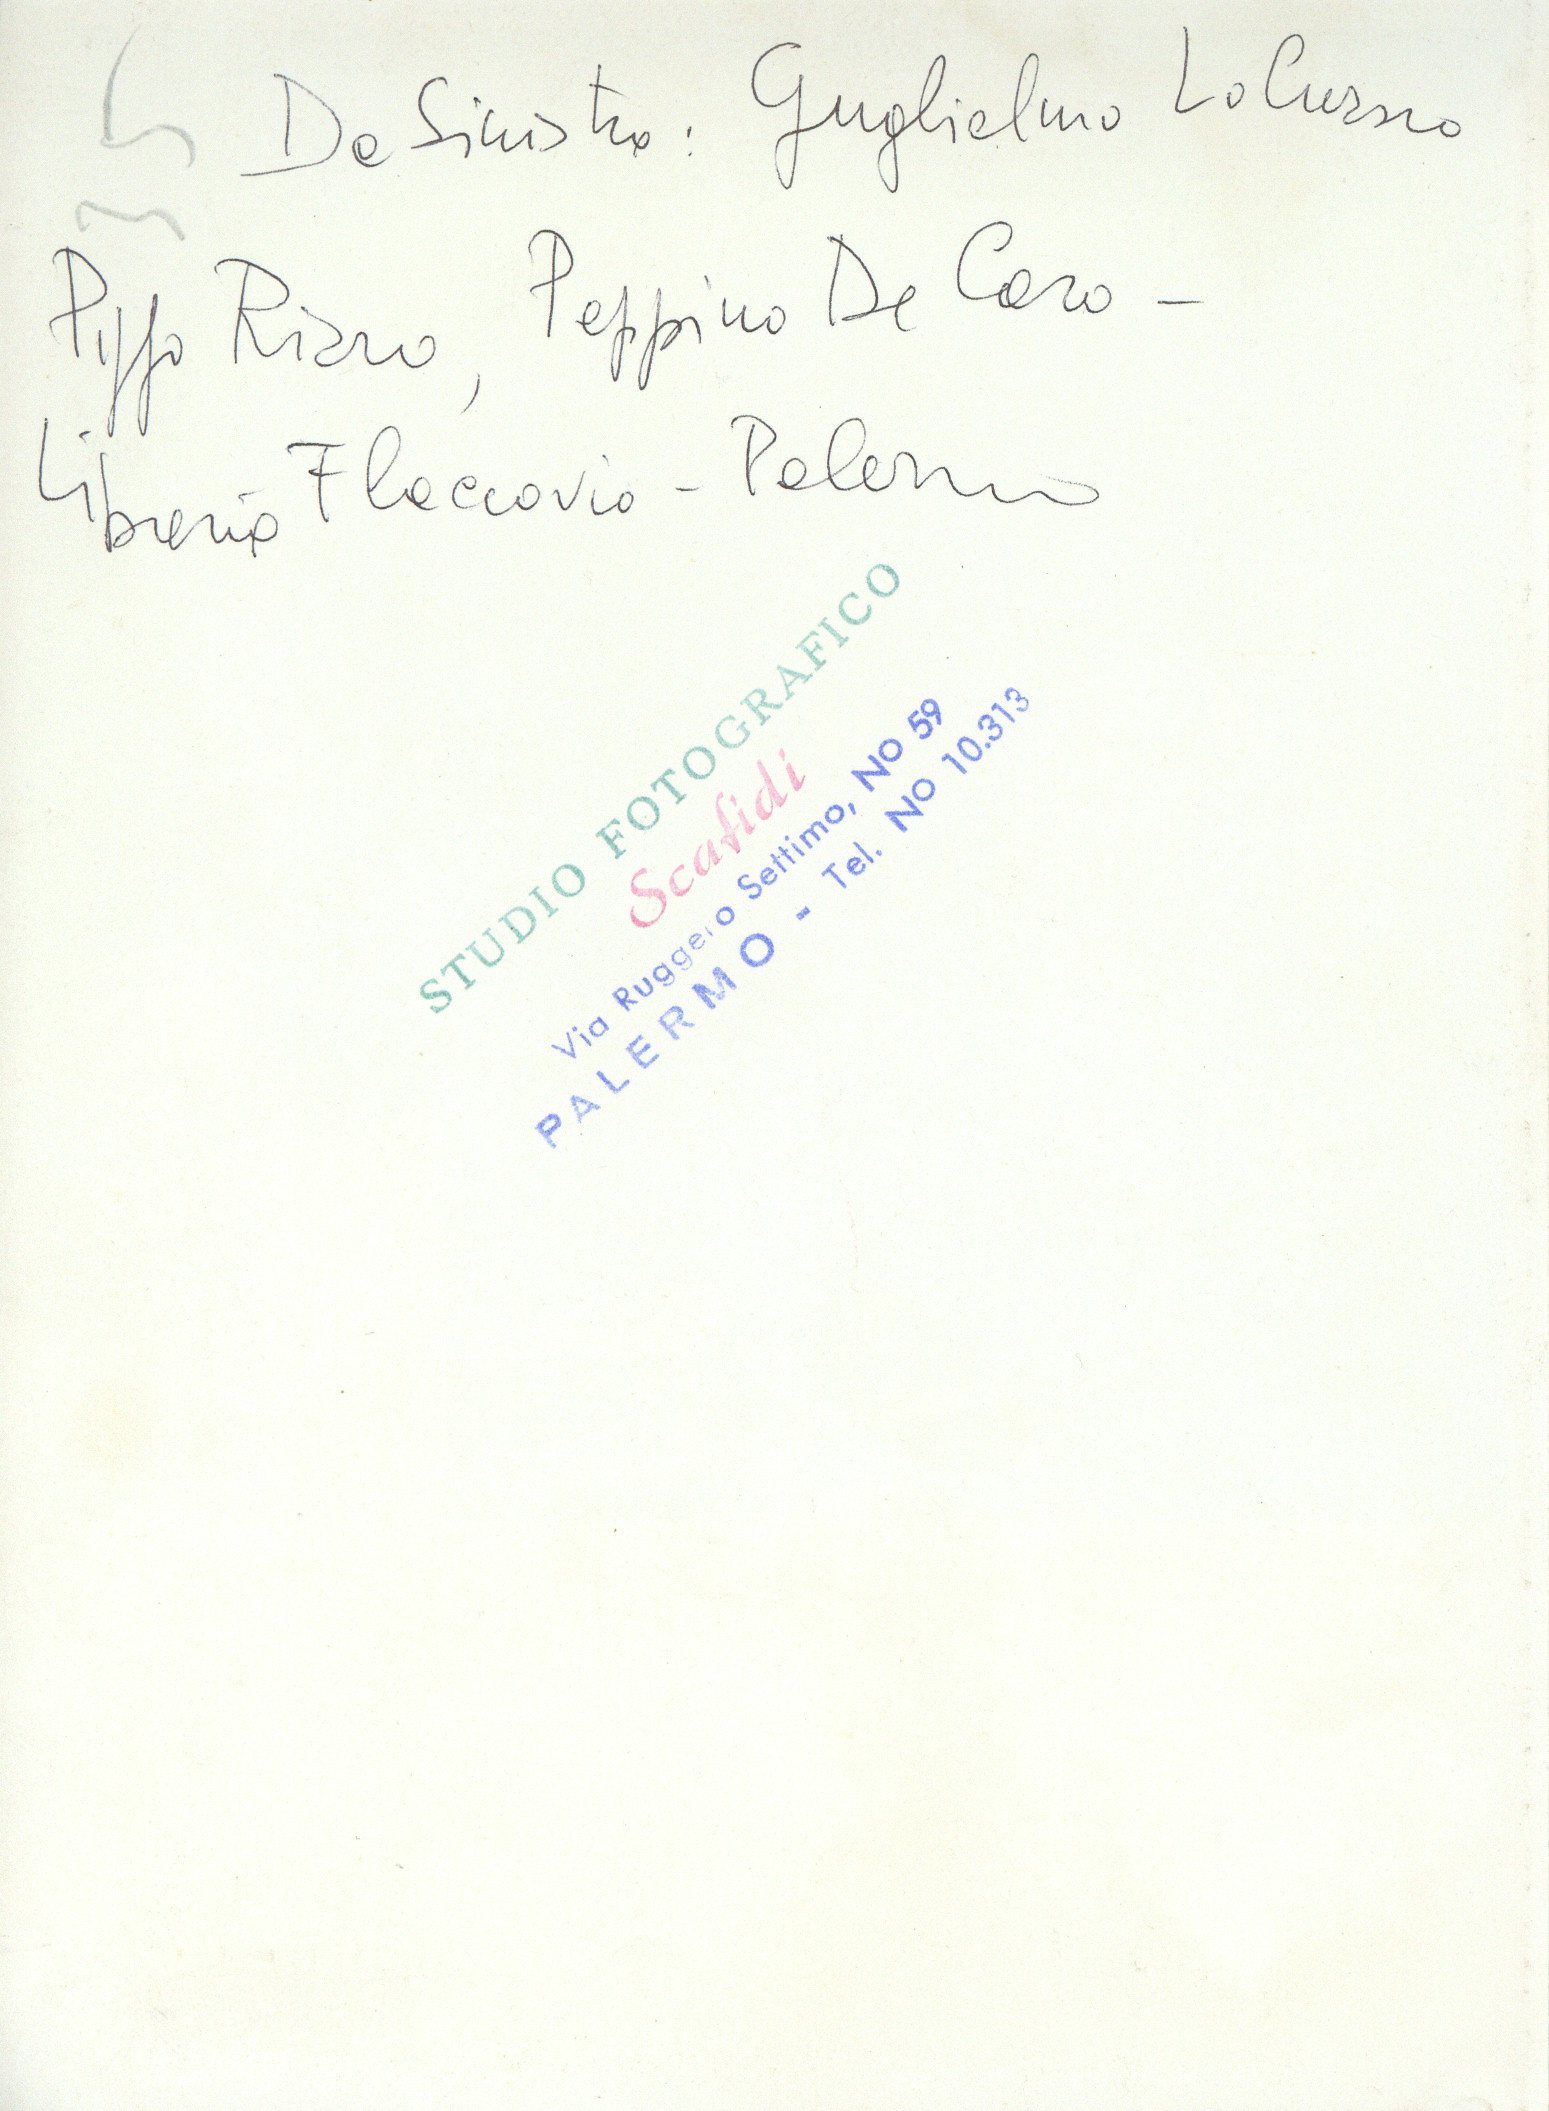 Da Sinistra: Guglielmo Lo Curzio
Pippo Rizzo, Peppino De Caro -
Libreria Flaccovio - Palermo
STUDIO FOTOGRAFICO
Scafidi
Via Ruggero Settimo, NO 59
PALERMO - Tel. NO 10.313